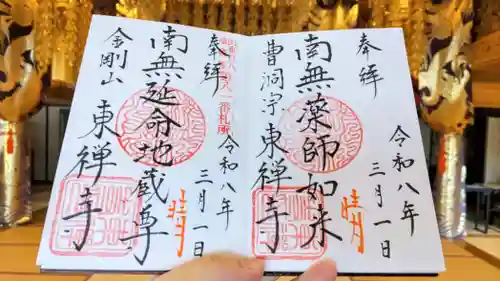 奉拝
南無薬師如来
曹洞宗 東禅寺
令和八年
三月一日
晴
奉拝
一番札所
南無延命地蔵尊
金剛山 東禅寺
令和八年
三月一日
晴